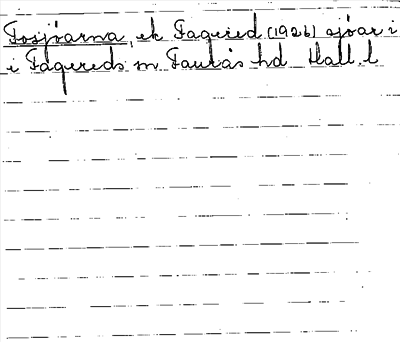 Tosjöarna, ek Fagered (1926) sjöar i
i Fagereds sn Faurås hd Hall. l